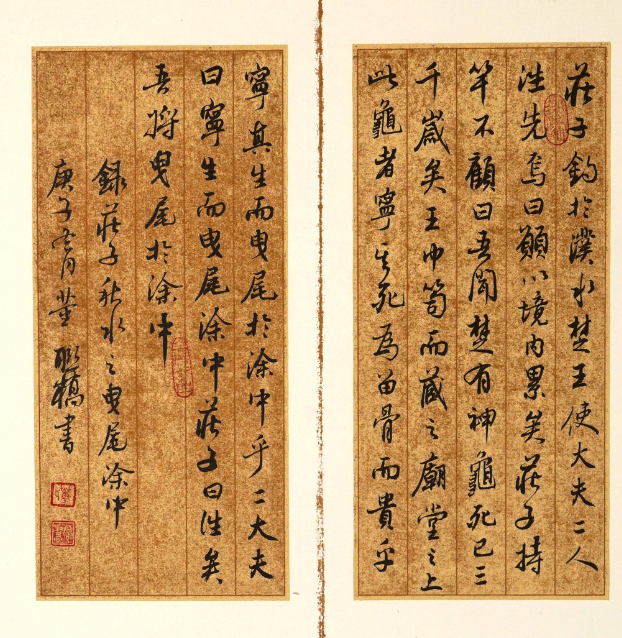 莊子釣於濮水楚王使大夫二人
往先焉曰願以境内累矣莊子持
竿不顧曰吾聞楚有神龜死已三
千歲矣王巾笥而藏之廟堂之上
此龜者寧其死為留骨而貴乎
寧其生而曳尾於塗中乎二大夫
曰寧生而曳尾塗中莊子曰往矣
吾將曳尾於塗中
錄莊子秋水之曳尾塗中
庚子 月董 書